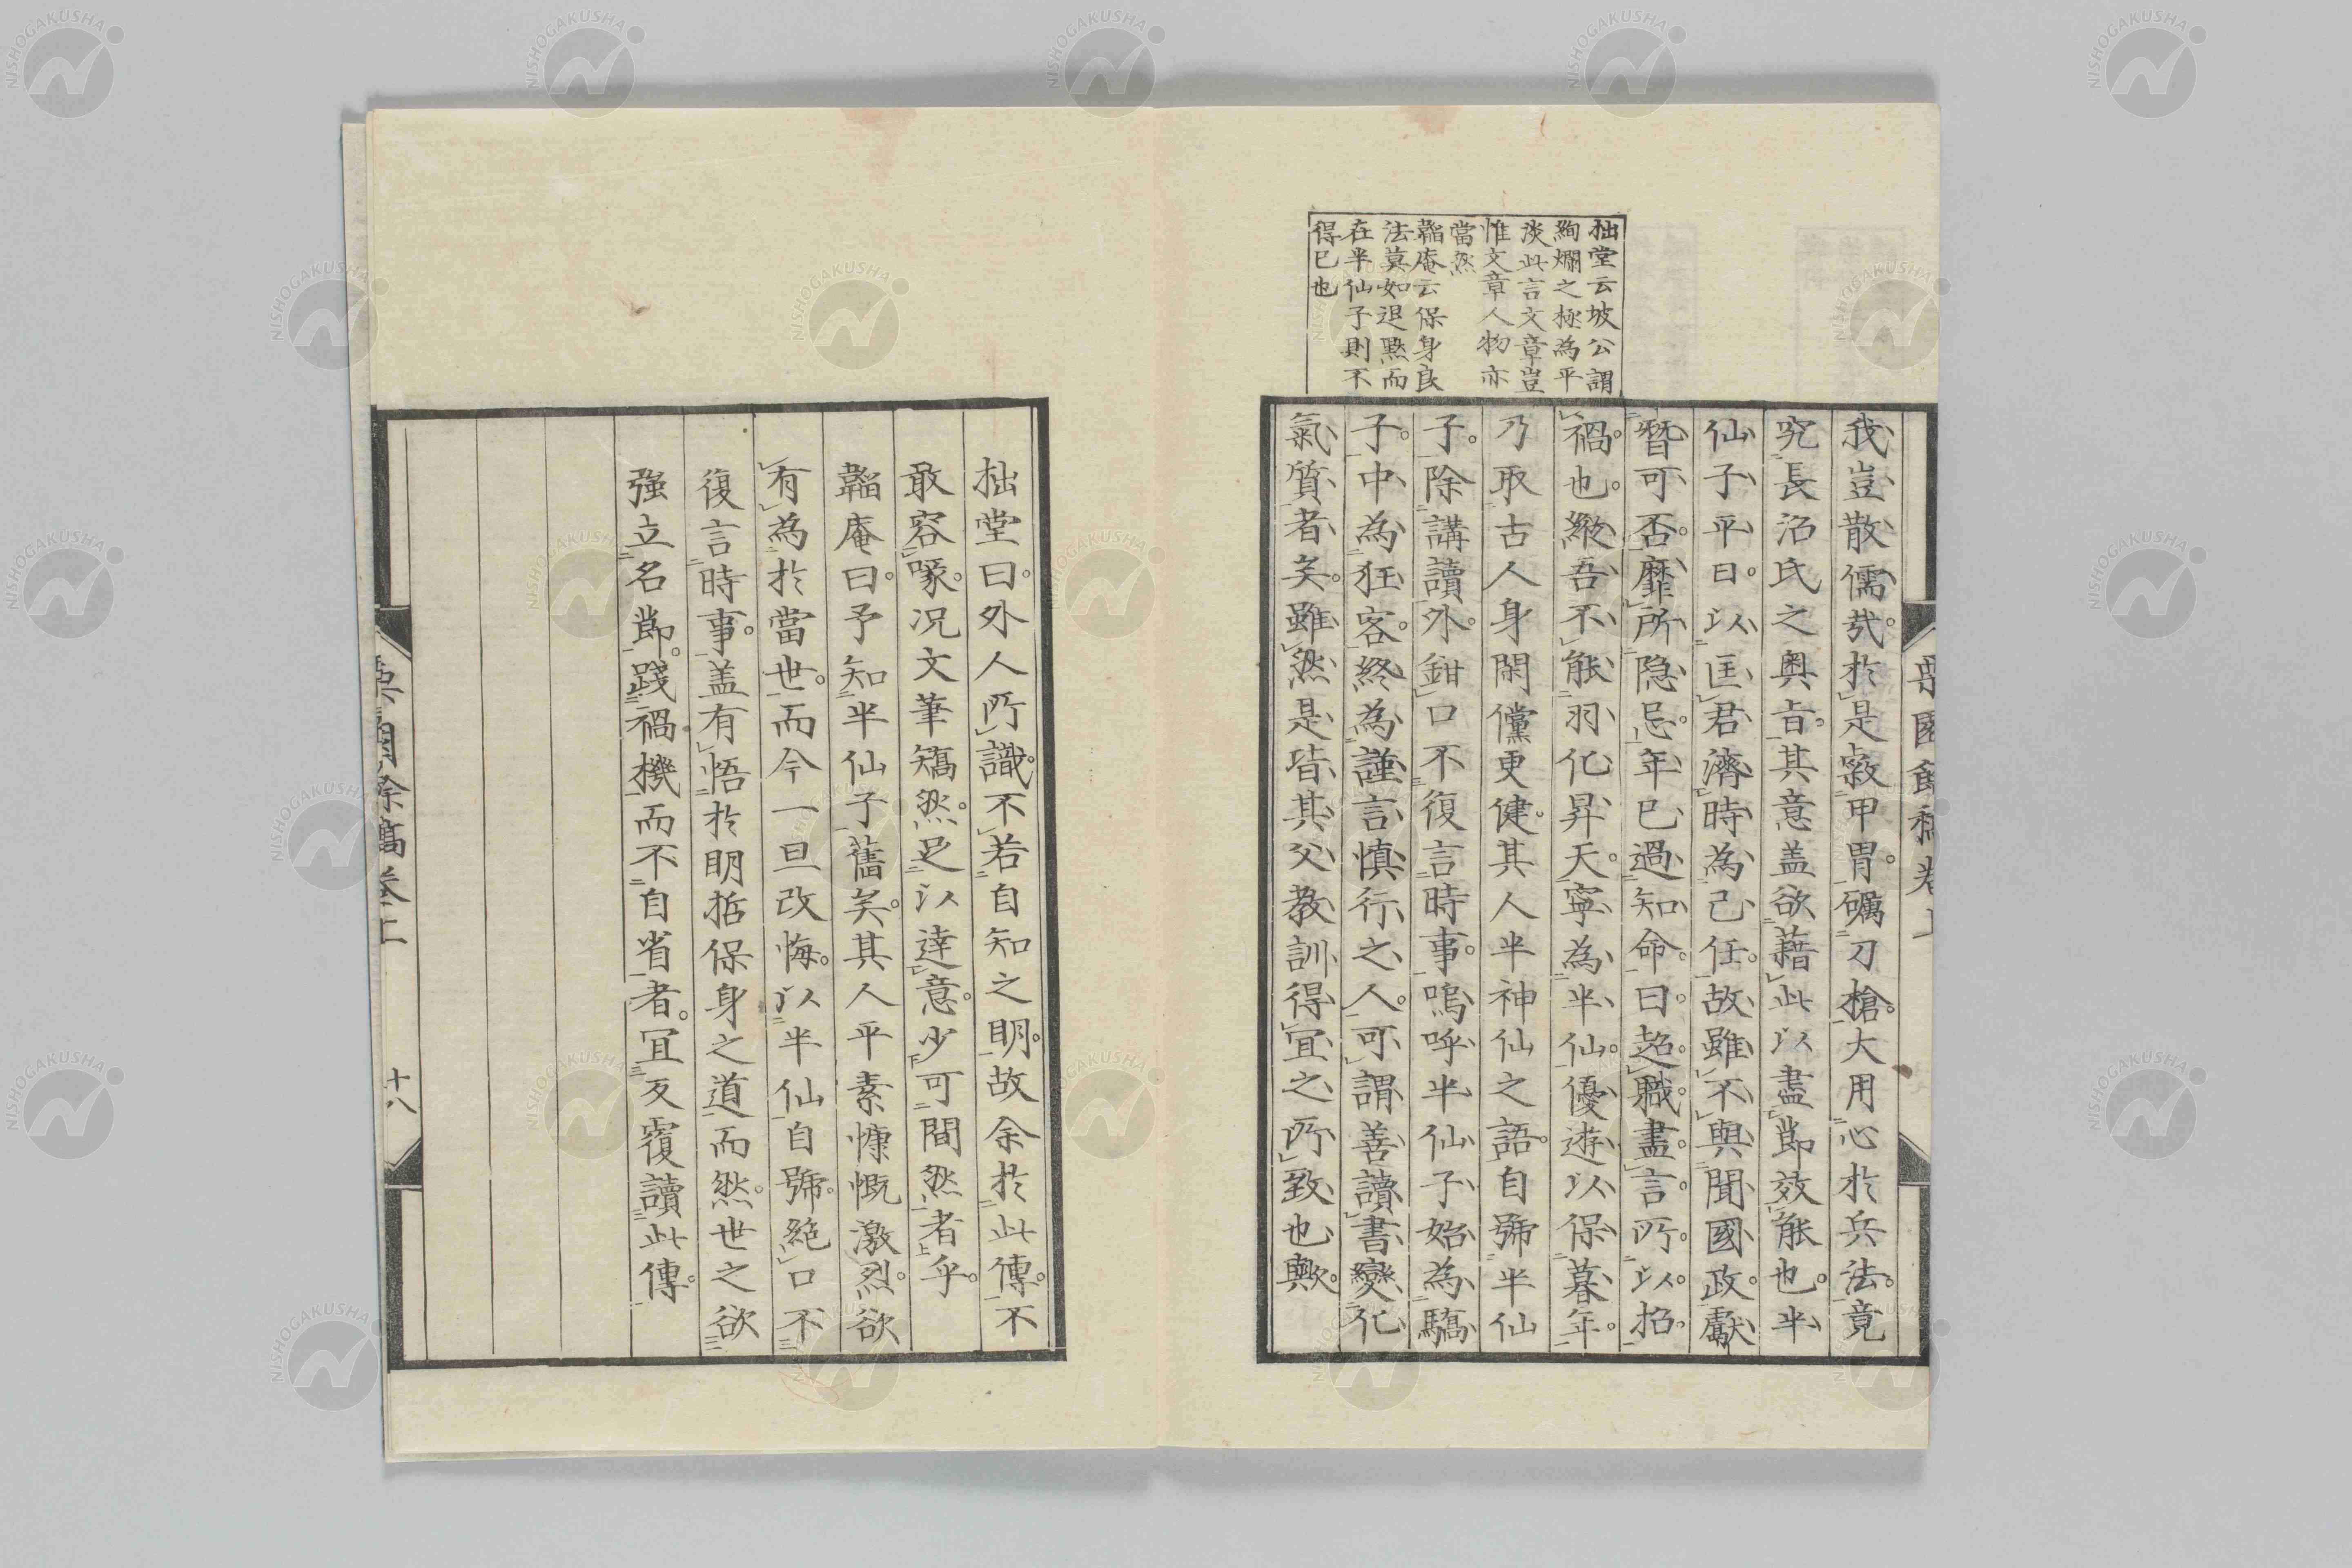 拙堂云坡公謂
絢爛之極為平
淡此言文章豈
惟文章人物亦
當然
韜庵云保身良
法莫如退黙而
在半仙子則不
得已也
我豈散儒哉於是寂甲冑礪刀槍大用心於兵法竟
究長沼氏之奥旨其意盖欲藉此以盡節效能也半
仙子平日以匡君濟時為己任故雖不與聞國政獻
替可否靡所隐忌年已過知命曰越職盡言所以招
禍也緻吾不能羽化昇天寧為半仙優遊以保暮年
乃取古人身閑儻更健其人半神仙之語自號半仙
子除講讀外鉗口不復言時事嗚呼半仙子始為驕
子中為狂客終為謹言慎行之人可謂善讀書變化
氣質者矣雖然是皆其父教訓得宜之所致也歟
拙堂曰外人所識不若自知之明故余於此傳不
敢容喙况文筆矯然足以達意少可間然者乎
韜庵曰予知半仙子舊矣其人平素慷慨激烈欲
有為於當世而今一旦改悔以半仙自號絶口不
復言時事盖有悟於明哲保身之道而然世之欲
强立名節踐禍機而不自省者宜反覆讀此傳
十八
NISHOGAKUSHA